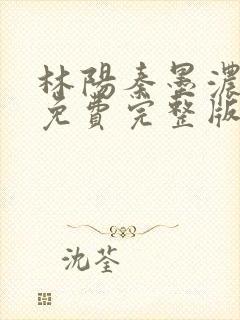 林陽秦墨濃
免費完整版
沈荃